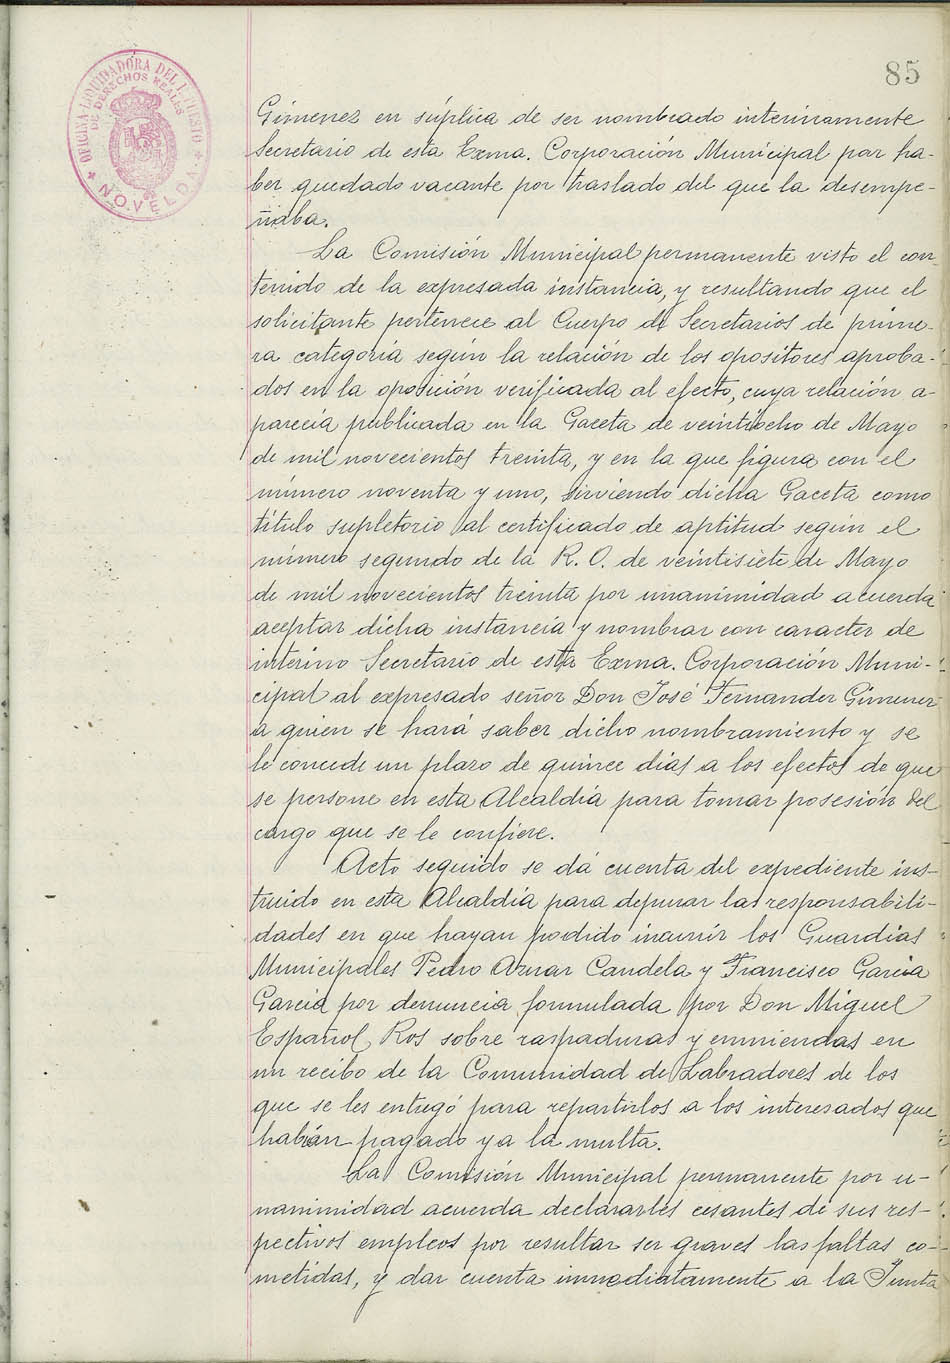 85
OFICINA LIQUIDADORA DEL IMPUESTO
DE DERECHOS REALES
NOVELDA
Gimenez en súplica de ser nombrado interinamente
Secretario de esta Exma. Corporación Municipal por ha-
ber quedado vacante por traslado del que la desempe-
ñaba.
La Comisión Municipal permanente visto el con-
tenido de la expresada instancia, y resultando que el
solicitante pertenece al Cuerpo de Secretarios de prime-
ra categoría según la relación de los opositores aproba-
dos en la oposición verificada al efecto, cuya relación a-
parecía publicada en la Gaceta de veintiocho de Mayo
de mil novecientos treinta, y en la que figura con el
número noventa y uno, sirviendo dicha Gaceta como
título supletorio al certificado de aptitud según el
número segundo de la R. O. de veintisiete de Mayo
de mil novecientos treinta por unanimidad acuerda
aceptar dicha instancia y nombrar con caracter de
interino Secretario de esta Exma. Corporación Muni-
cipal al expresado señor Don José Fernandez Gimenez
a quien se hará saber dicho nombramiento y se
le concede un plazo de quince dias a los efectos de que
se persone en esta Alcaldía para tomar posesión del
cargo que se le confiere.
Acto seguido se dá cuenta del expediente ins-
truido en esta Alcaldía para depurar las responsabili-
dades en que hayan podido incurrir los Guardias
Municipales Pedro Aznar Candela y Francisco Garcia
Garcia por denuncia formulada por Don Miguel
Español Ros sobre raspaduras y enmiendas en
un recibo de la Comunidad de Labradores de los
que se les entregó para repartirlos a los interesados que
habían pagado ya la multa.
La Comisión Municipal permanente por u-
nanimidad acuerda declararles cesantes de sus res-
pectivos empleos por resultar ser graves las faltas co-
metidas, y dar cuenta inmediatamente a la Junta